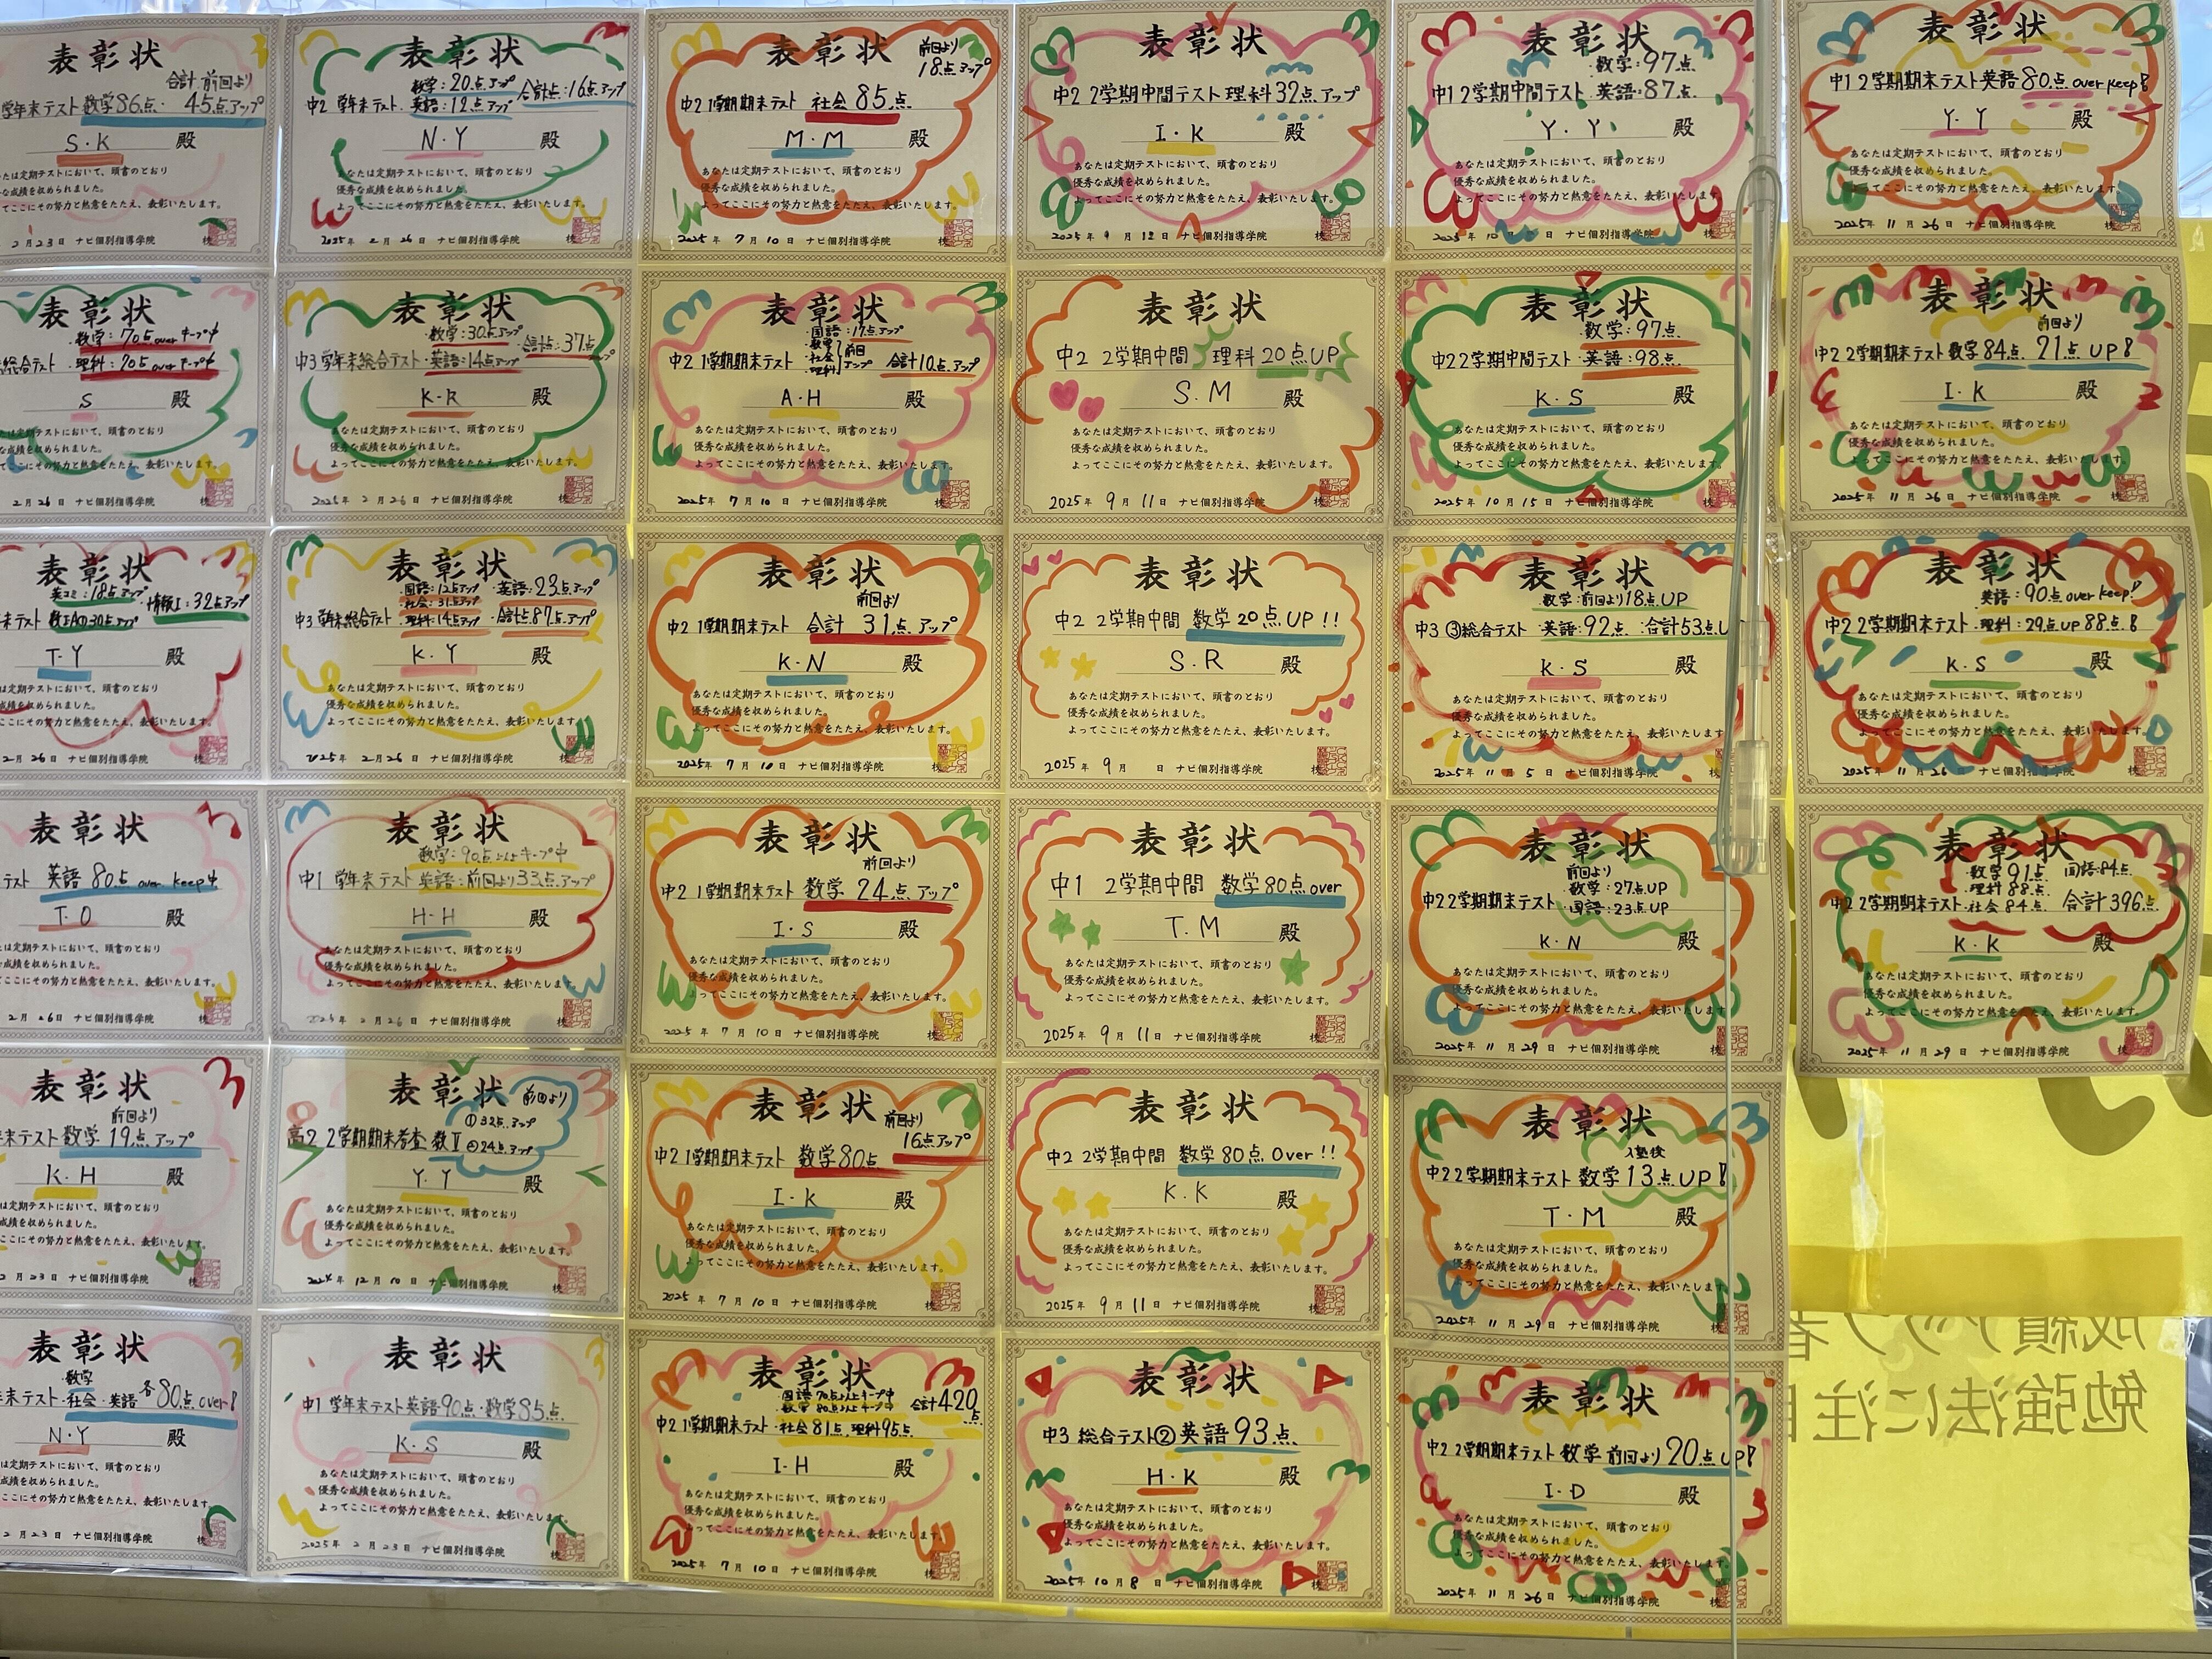 表彰状
合計:前回より
学年末テスト 数学86点・45点アップ
S・K 殿
あなたは定期テストにおいて、頭書のとおり
優秀な成績を収められました。
よってここにその努力と熱意をたたえ、表彰いたします。
2月23日 ナビ個別指導学院
表彰状
数学:20点アップ 合計点:16点アップ
中2 学年末テスト・英語:12点アップ
N・Y 殿
あなたは定期テストにおいて、頭書のとおり
優秀な成績を収められました。
よってここにその努力と熱意をたたえ、表彰いたします。
2025年 2月26日 ナビ個別指導学院
表彰状
前回より
18点アップ
中2 1学期期末テスト 社会85点
M・M 殿
あなたは定期テストにおいて、頭書のとおり
優秀な成績を収められました。
よってここにその努力と熱意をたたえ、表彰いたします。
2025年 7月10日 ナビ個別指導学院
表彰状
中2 2学期中間テスト 理科32点アップ
I・K 殿
あなたは定期テストにおいて、頭書のとおり
優秀な成績を収められました。
よってここにその努力と熱意をたたえ、表彰いたします。
2025年 9月12日 ナビ個別指導学院
表彰状
数学:97点
中1 2学期中間テスト・英語:87点
Y・Y 殿
あなたは定期テストにおいて、頭書のとおり
優秀な成績を収められました。
よってここにその努力と熱意をたたえ、表彰いたします。
2025年 10月 日 ナビ個別指導学院
表彰状
中1 2学期期末テスト 英語80点over keep!
Y・Y 殿
あなたは定期テストにおいて、頭書のとおり
優秀な成績を収められました。
よってここにその努力と熱意をたたえ、表彰いたします。
2025年 11月26日 ナビ個別指導学院
表彰状
・数学:70点overキープ中
総合テスト ・理科:70点overキープ中
S 殿
あなたは定期テストにおいて、頭書のとおり
優秀な成績を収められました。
よってここにその努力と熱意をたたえ、表彰いたします。
2月26日 ナビ個別指導学院
表彰状
・数学:30点アップ ・合計点:37点アップ
中3 学年末総合テスト・英語:14点アップ
K・R 殿
あなたは定期テストにおいて、頭書のとおり
優秀な成績を収められました。
よってここにその努力と熱意をたたえ、表彰いたします。
2025年 2月26日 ナビ個別指導学院
表彰状
・国語:17点アップ
・数学
・社会 前回
・理科 アップ
中2 1学期期末テスト 合計10点アップ
A・H 殿
あなたは定期テストにおいて、頭書のとおり
優秀な成績を収められました。
よってここにその努力と熱意をたたえ、表彰いたします。
2025年 7月10日 ナビ個別指導学院
表彰状
中2 2学期中間 理科20点UP
S.M 殿
あなたは定期テストにおいて、頭書のとおり
優秀な成績を収められました。
よってここにその努力と熱意をたたえ、表彰いたします。
2025年 9月11日 ナビ個別指導学院
表彰状
数学:97点
中2 2学期中間テスト・英語:98点
K・S 殿
あなたは定期テストにおいて、頭書のとおり
優秀な成績を収められました。
よってここにその努力と熱意をたたえ、表彰いたします。
2025年 10月15日 ナビ個別指導学院
表彰状
前回より
中2 2学期期末テスト 数学84点 21点UP!
I・K 殿
あなたは定期テストにおいて、頭書のとおり
優秀な成績を収められました。
よってここにその努力と熱意をたたえ、表彰いたします。
2025年 11月26日 ナビ個別指導学院
表彰状
・英コミ:18点アップ ・情報I:32点アップ
末テスト 数IA 30点アップ
T・Y 殿
あなたは定期テストにおいて、頭書のとおり
優秀な成績を収められました。
よってここにその努力と熱意をたたえ、表彰いたします。
2月26日 ナビ個別指導学院
表彰状
・国語:12点アップ ・英語:23点アップ
・社会:31点アップ
中3 学年末総合テスト・理科:14点アップ ・合計点87点アップ
K・Y 殿
あなたは定期テストにおいて、頭書のとおり
優秀な成績を収められました。
よってここにその努力と熱意をたたえ、表彰いたします。
2025年 2月26日 ナビ個別指導学院
表彰状
前回より
中2 1学期期末テスト 合計 31点アップ
K・N 殿
あなたは定期テストにおいて、頭書のとおり
優秀な成績を収められました。
よってここにその努力と熱意をたたえ、表彰いたします。
2025年 7月10日 ナビ個別指導学院
表彰状
中2 2学期中間 数学20点UP!!
S.R 殿
あなたは定期テストにおいて、頭書のとおり
優秀な成績を収められました。
よってここにその努力と熱意をたたえ、表彰いたします。
2025年 9月 日 ナビ個別指導学院
表彰状
数学:前回より18点UP
中3 ③総合テスト ・英語:92点 ・合計53点U
K・S 殿
あなたは定期テストにおいて、頭書のとおり
優秀な成績を収められました。
よってここにその努力と熱意をたたえ、表彰いたします。
2025年 11月5日 ナビ個別指導学院
表彰状
英語:90点over keep!
中2 2学期期末テスト・理科:29点UP 88点!
K・S 殿
あなたは定期テストにおいて、頭書のとおり
優秀な成績を収められました。
よってここにその努力と熱意をたたえ、表彰いたします。
2025年 11月26日 ナビ個別指導学院
表彰状
テスト 英語80点over keep中
T・O 殿
あなたは定期テストにおいて、頭書のとおり
優秀な成績を収められました。
よってここにその努力と熱意をたたえ、表彰いたします。
2月26日 ナビ個別指導学院
表彰状
数学:90点以上キープ中
中1 学年末テスト 英語:前回より33点アップ
H・H 殿
あなたは定期テストにおいて、頭書のとおり
優秀な成績を収められました。
よってここにその努力と熱意をたたえ、表彰いたします。
2025年 2月26日 ナビ個別指導学院
表彰状
前回より
中2 1学期期末テスト 数学 24点アップ
I・S 殿
あなたは定期テストにおいて、頭書のとおり
優秀な成績を収められました。
よってここにその努力と熱意をたたえ、表彰いたします。
2025年 7月10日 ナビ個別指導学院
表彰状
中1 2学期中間 数学80点over
T.M 殿
あなたは定期テストにおいて、頭書のとおり
優秀な成績を収められました。
よってここにその努力と熱意をたたえ、表彰いたします。
2025年 9月11日 ナビ個別指導学院
表彰状
前回より
・数学:27点UP
中2 2学期期末テスト ・国語:23点UP
K・N 殿
あなたは定期テストにおいて、頭書のとおり
優秀な成績を収められました。
よってここにその努力と熱意をたたえ、表彰いたします。
2025年 11月29日 ナビ個別指導学院
表彰状
・数学91点 国語84点
・理科88点
中2 2学期期末テスト・社会84点 合計396点
K・K 殿
あなたは定期テストにおいて、頭書のとおり
優秀な成績を収められました。
よってここにその努力と熱意をたたえ、表彰いたします。
2025年 11月29日 ナビ個別指導学院
表彰状
前回より
末テスト 数学 19点アップ
K・H 殿
あなたは定期テストにおいて、頭書のとおり
優秀な成績を収められました。
よってここにその努力と熱意をたたえ、表彰いたします。
2月23日 ナビ個別指導学院
表彰状
前回より
①32点アップ
高2 2学期期末考査 数Ⅱ ②24点アップ
Y・Y 殿
あなたは定期テストにおいて、頭書のとおり
優秀な成績を収められました。
よってここにその努力と熱意をたたえ、表彰いたします。
2024年 12月10日 ナビ個別指導学院
表彰状
前回より
16点アップ
中2 1学期期末テスト 数学80点
I・K 殿
あなたは定期テストにおいて、頭書のとおり
優秀な成績を収められました。
よってここにその努力と熱意をたたえ、表彰いたします。
2025年 7月10日 ナビ個別指導学院
表彰状
中2 2学期中間 数学80点Over!!
K.K 殿
あなたは定期テストにおいて、頭書のとおり
優秀な成績を収められました。
よってここにその努力と熱意をたたえ、表彰いたします。
2025年 9月11日 ナビ個別指導学院
表彰状
入塾後
中2 2学期期末テスト 数学13点UP!
T・M 殿
あなたは定期テストにおいて、頭書のとおり
優秀な成績を収められました。
よってここにその努力と熱意をたたえ、表彰いたします。
2025年 11月29日 ナビ個別指導学院
表彰状
・数学
末テスト・社会・英語 各80点over!
N・Y 殿
あなたは定期テストにおいて、頭書のとおり
優秀な成績を収められました。
よってここにその努力と熱意をたたえ、表彰いたします。
2月23日 ナビ個別指導学院
表彰状
中1 学年末テスト 英語90点・数学85点
K・S 殿
あなたは定期テストにおいて、頭書のとおり
優秀な成績を収められました。
よってここにその努力と熱意をたたえ、表彰いたします。
2025年 2月23日 ナビ個別指導学院
表彰状
・国語90点以上キープ中
・数学80点以上キープ中 合計420点
中2 1学期期末テスト ・社会81点、理科95点
I・H 殿
あなたは定期テストにおいて、頭書のとおり
優秀な成績を収められました。
よってここにその努力と熱意をたたえ、表彰いたします。
2025年 7月10日 ナビ個別指導学院
表彰状
中3 総合テスト② 英語93点
H・K 殿
あなたは定期テストにおいて、頭書のとおり
優秀な成績を収められました。
よってここにその努力と熱意をたたえ、表彰いたします。
2025年 10月8日 ナビ個別指導学院
表彰状
中2 2学期期末テスト 数学 前回より20点UP!
I・D 殿
あなたは定期テストにおいて、頭書のとおり
優秀な成績を収められました。
よってここにその努力と熱意をたたえ、表彰いたします。
2025年 11月26日 ナビ個別指導学院
成績アップ者
勉強法に注目